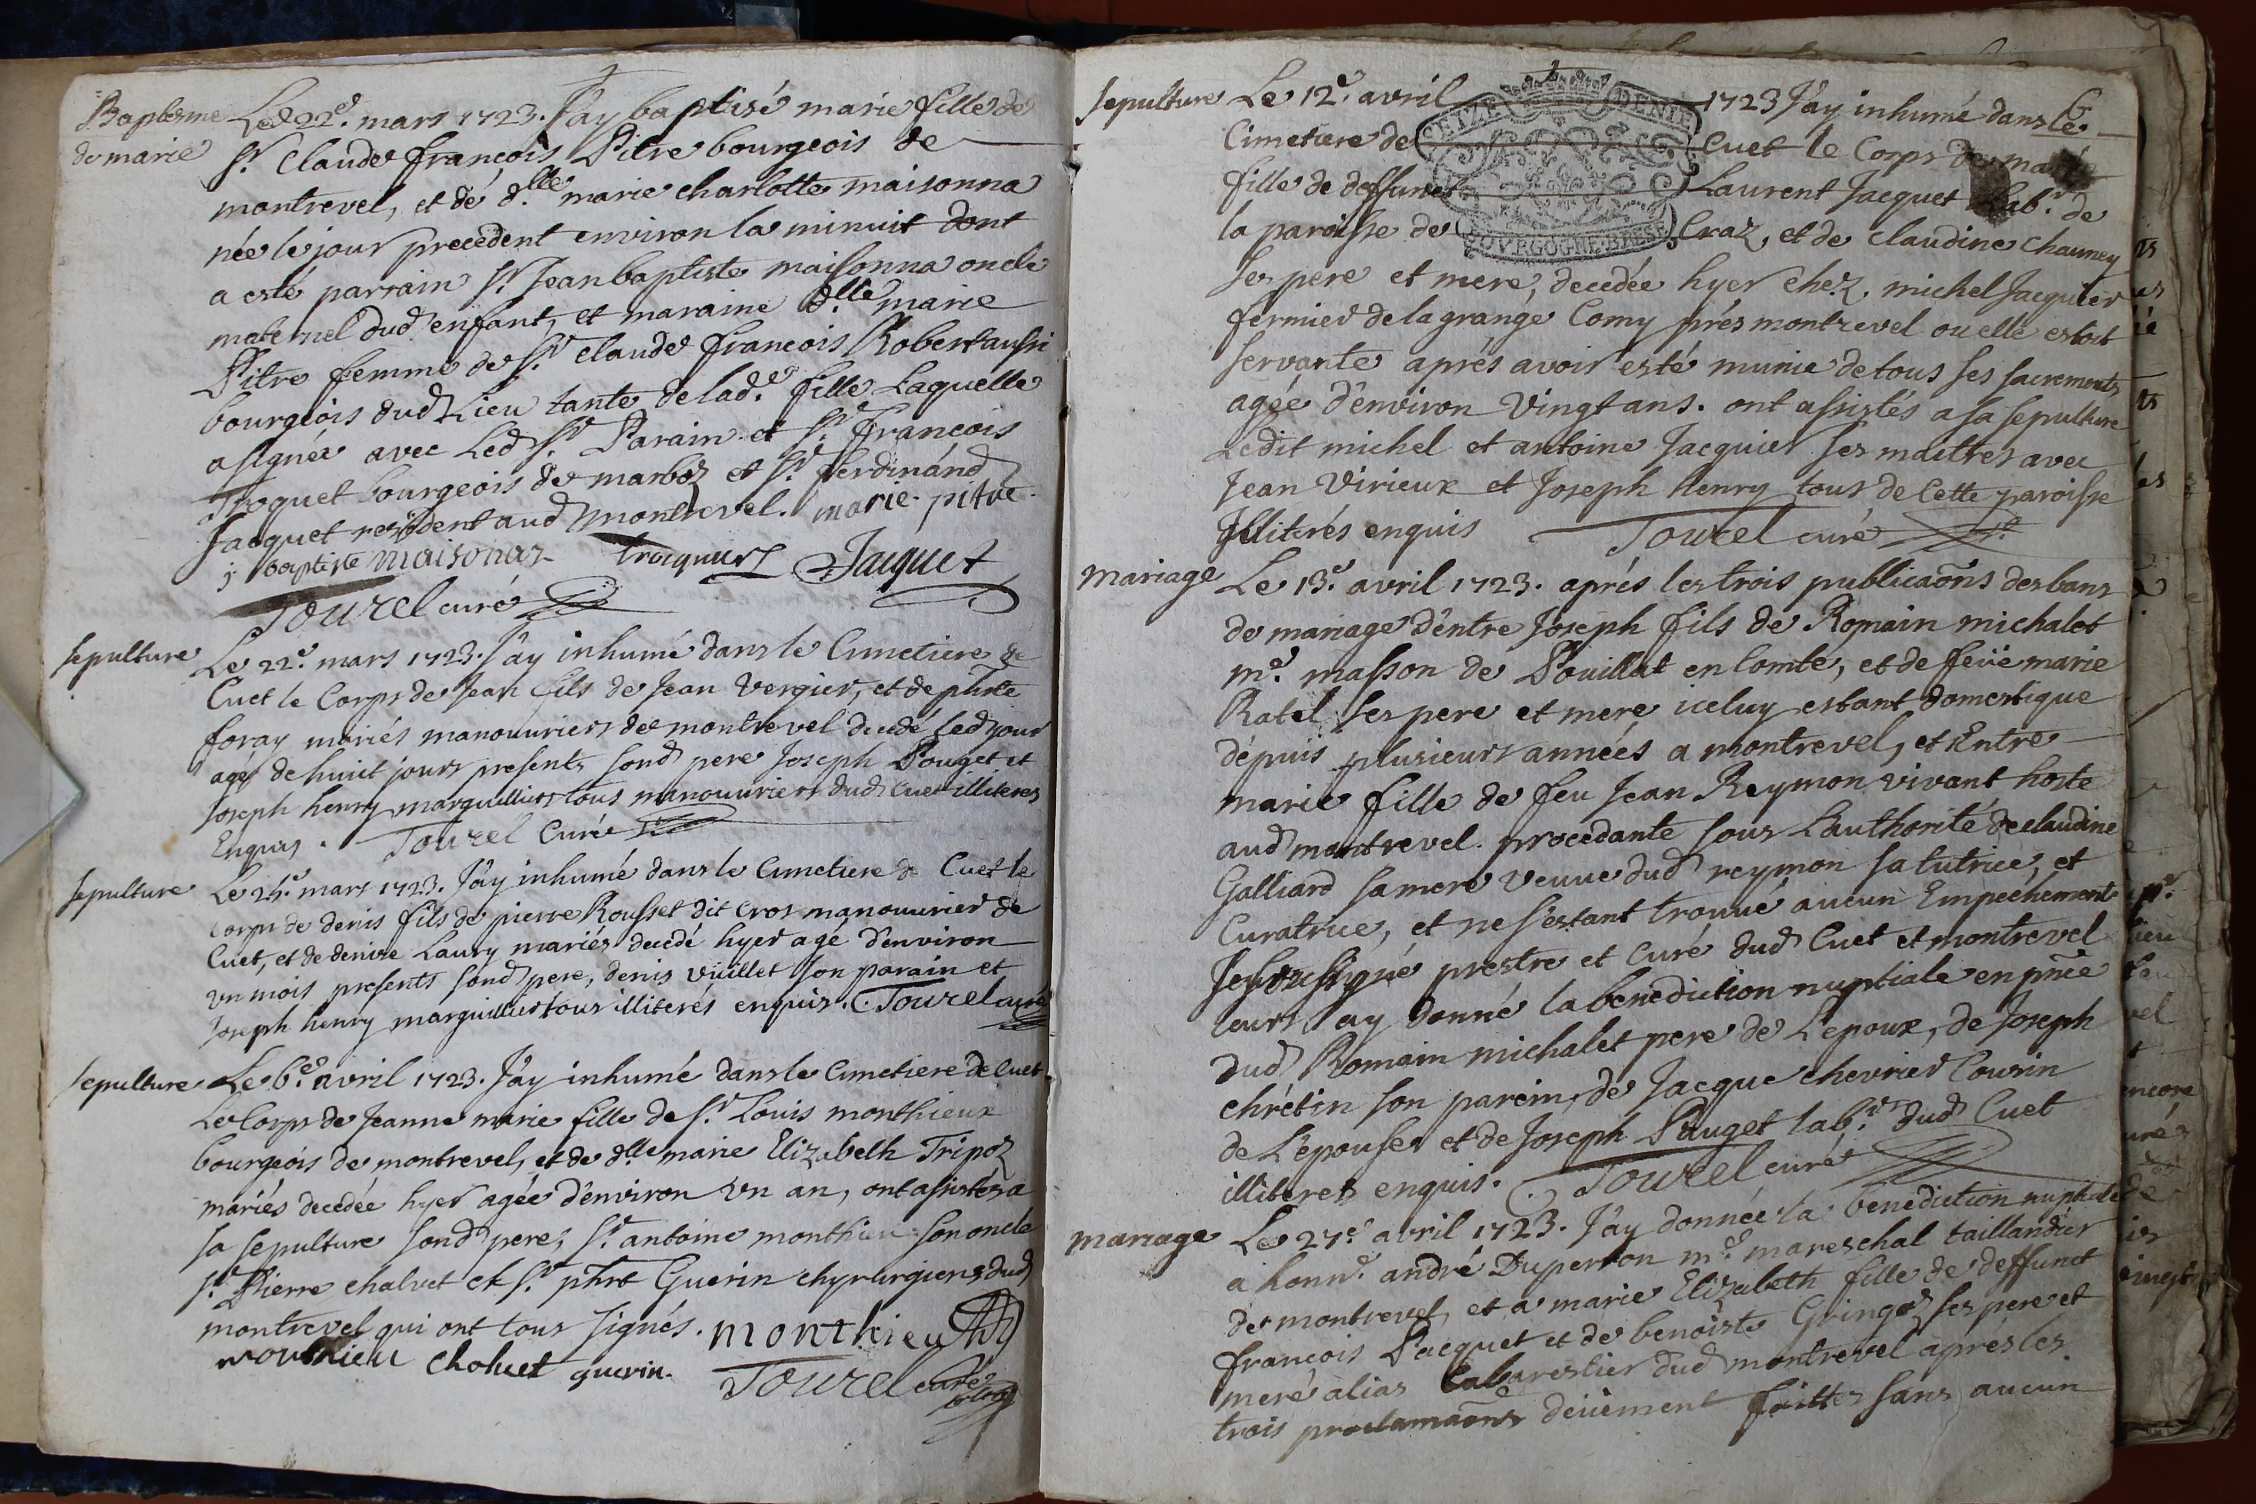 Baptesme
de marie
Le 22e. mars 1723. J'ay baptisé marie fille de
Sr. Claude françois Pitre bourgeois de
montrevel, et de dlle. marie charlotte maisonna
née le jour precedent environ la minuit dont
a esté parrain Sr. Jean baptiste maisonna oncle
maternel dud enfant, et maraine dlle. marie
Pitre femme de Sr. Claude francois Robert aussi
bourgeois dud Lieu tante de lad. fille Laquelle
a signée avec Led Sr. Parain et Sr. François
Troquet bourgeois de marboz et Sr. ferdinánd
Jacquet resident aud montrevel. marie pitre
j. baptiste maisonaz trocquet Jaquet
Tourel curé
sepulture
Le 22e. mars 1723. J'ay inhumé dans le Cimetiere de
Cuet le Corps de Jean fils de Jean Vergier, et de phte
foray mariés manouvriers de montrevel decedé led jour
agé de huit jours presents sond pere Joseph Pouget et
Joseph henry marguilliers tous manouvriers dud Cuet illiteres
Enquis. Tourel Curé
sepulture
Le 24e. mars 1723. J'ay inhumé dans le Cimetiere de Cuet le
corps de denis fils de pierre Rousset dit cros manouvrier de
Cuet, et de denise Laury mariés decedé hyer agé d'environ
un mois presents sond pere, denis viullet son parain et
Joseph henry marguillier tous illiterés enquis. Tourel curé
sepulture
Le 6e. avril 1723. J'ay inhumé dans le Cimetiere de Cuet
Le Corps de Jeanne marie fille de Sr. Louis monthieux
bourgeois de montrevel, et de dlle marie Elizabeth Tripoz
mariés decedée hyer agée d'environ un an, ont assistés a
sa sepulture sond pere, Sr. antoine monthieu son oncle
Sr. Pierre chalvet et Sr. phrt Guerin chyrurgiens dud
montrevel qui ont tous signés. monthieu
monthieu Choluet guerin.
Tourel curé
sepulture
Le 12e. avril 1723 J'ay inhumé dans le
Cimetiere de Cuet le Corps de marie
fille de deffunct Laurent Jacquet lab.r de
la paroisse de Craz, et de claudine Chauney
ses pere et mere, decedée hyer chez michel Jacquier
fermier de la grange Comy prés montrevel ou elle estoit
servante aprés avoir esté munie de tous ses sacrements
agée d'environ vingt ans. ont assistés a sa sepulture
Ledit michel et antoine Jacquier ses maitres avec
Jean Virieux et Joseph henry tous de Cette paroisse
Illiterés enquis Tourel curé
SEIZE DENIE
BOURGOGNE BRESSE
mariage
Le 13e. avril 1723. aprés les trois publicaõns des bans
de mariage d'entre Joseph fils de Romain michalet
me. masson de Pouillat en Comté, et de feüe marie
Ratel ses pere et mere iceluy estant domestique
dépuis plusieurs années a montrevel, et Entre
marie fille de feu Jean Reymon vivant hoste
aud montrevel. procedante sous L'authorité de claudine
Galliard sa mere veuve dud reymon sa tutrice, et
Curatrice, et ne s'estant trouvé aucun Empechement
Je soussigné prestre et curé dud Cuet et montrevel
leurs ay donné la benediction nuptiale en pñce
dud Romain michalet pere de L'epoux, de Joseph
chrétin son parein, de Jacque chevrier Cousin
de L'epouse, et de Joseph Pauget lab.r dud Cuet
illiteres enquis. Tourel curé
mariage
Le 27e. avril 1723. J'ay donnée la benediction nuptiale
a honn.e andré Duperron me. mareschal taillandier
de montrevel, et a marie Elizabeth fille de deffunct
françois Pacquet et de benoiste Gringoz ses pere et
mere alias Cabarestier dud montrevel aprés les
trois proclamaõns deüement faittes sans aucun